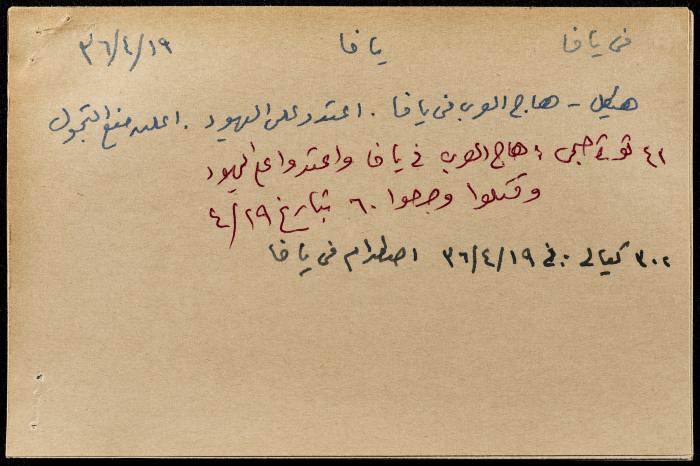 في يافا يافا ٣٦/٤/١٩
هيكل - هاج العرب في يافا . اعتدوا على اليهود . اعلان منع التجول
٤٢ توفيق حجي : هاج العرب في يافا واعتدوا على اليهود
وقتلوا وجرحوا ٦٠ بتاريخ ٤/١٩
٣٠٢ كيالي : في ٣٦/٤/١٩ اصطدام في يافا